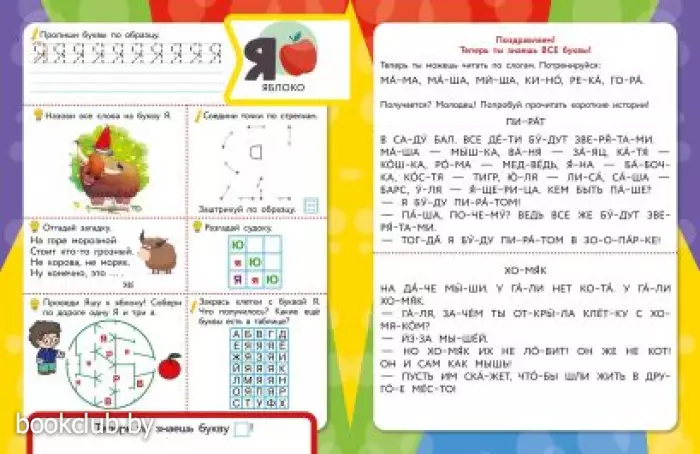 Пропиши буквы по образцу.
Я Я Я Я Я Я Я Я Я Я
Я
ЯБЛОКО
Назови все слова на букву Я.
Соедини точки по стрелкам.
Заштрихуй по образцу.
Отгадай загадку.
На горе морозной
Стоит кто-то грозный.
Не корова, не моряк.
Ну конечно, это ... .
Разгадай судоку.
Ю
я Ю
Я я Ю
Проведи Яшу к яблоку! Собери
по дороге одну Я и три я.
Закрась клетки с буквой Я.
Что получилось? Какие ещё
буквы есть в таблице?
Теперь ты знаешь букву !
Поздравляем!
Теперь ты знаешь ВСЕ буквы!
Теперь ты можешь читать по слогам. Потренируйся:
МА́-МА, МА́-ША, МИ́-ША, КИ-НО́, РЕ-КА́, ГО-РА́.
Получается? Молодец! Попробуй прочитать короткие истории!
ПИ-РА́Т
В СА-ДУ́ БАЛ. ВСЕ ДЕ́-ТИ БУ́-ДУТ ЗВЕ-РЯ́-ТА-МИ.
МА́-ША — МЫ́Ш-КА, ВА́-НЯ — ЗА́-ЯЦ, КА́-ТЯ —
КО́Ш-КА, РО́-МА — МЕД-ВЕ́ДЬ, Я́-НА — БА́-БОЧ-
КА, КО́С-ТЯ — ТИГР, Ю́-ЛЯ — ЛИ-СА́, СА́-ША —
БАРС, У́-ЛЯ — Я́-ЩЕ-РИ-ЦА. КЕМ БЫТЬ ПА́-ШЕ?
— Я БУ́-ДУ ПИ-РА́-ТОМ!
— ПА́-ША, ПО-ЧЕ-МУ́? ВЕДЬ ВСЕ ЖЕ БУ́-ДУТ ЗВЕ-
РЯ́-ТА-МИ.
— ТОГ-ДА́ Я БУ́-ДУ ПИ-РА́-ТОМ В ЗО-О-ПА́Р-КЕ!
ХО-МЯ́К
НА ДА́-ЧЕ МЫ́-ШИ. У ГА́-ЛИ НЕТ КО-ТА́. У ГА́-ЛИ
ХО-МЯ́К.
— ГА́-ЛЯ, ЗА-ЧЕ́М ТЫ ОТ-КРЫ́-ЛА КЛЕ́Т-КУ С ХО-
МЯ-КО́М?
— И́З-ЗА МЫ-ШЕ́Й.
— НО ХО-МЯ́К ИХ НЕ ЛО́-ВИТ! ОН ЖЕ НЕ КОТ!
ОН И САМ КАК МЫШЬ!
— ПУСТЬ ИМ СКА́-ЖЕТ, ЧТО́-БЫ ШЛИ ЖИТЬ В ДРУ-
ГО́-Е МЕ́С-ТО!
bookclub.by
bookclub.by